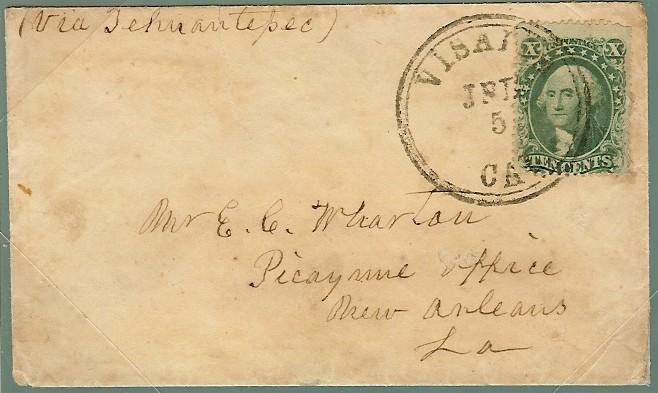 (Via Tehuantepec)
VISALI
5
CA
U.S. POSTAGE
X X
TEN CENTS
Mr E. C. Wharton
Picayune office
New Orleans
La